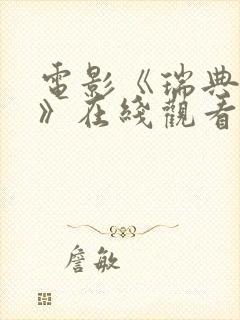 電影《瑞典
》在綫觀看
詹敏